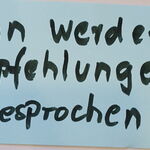 n werde
fehlunge
esprochen